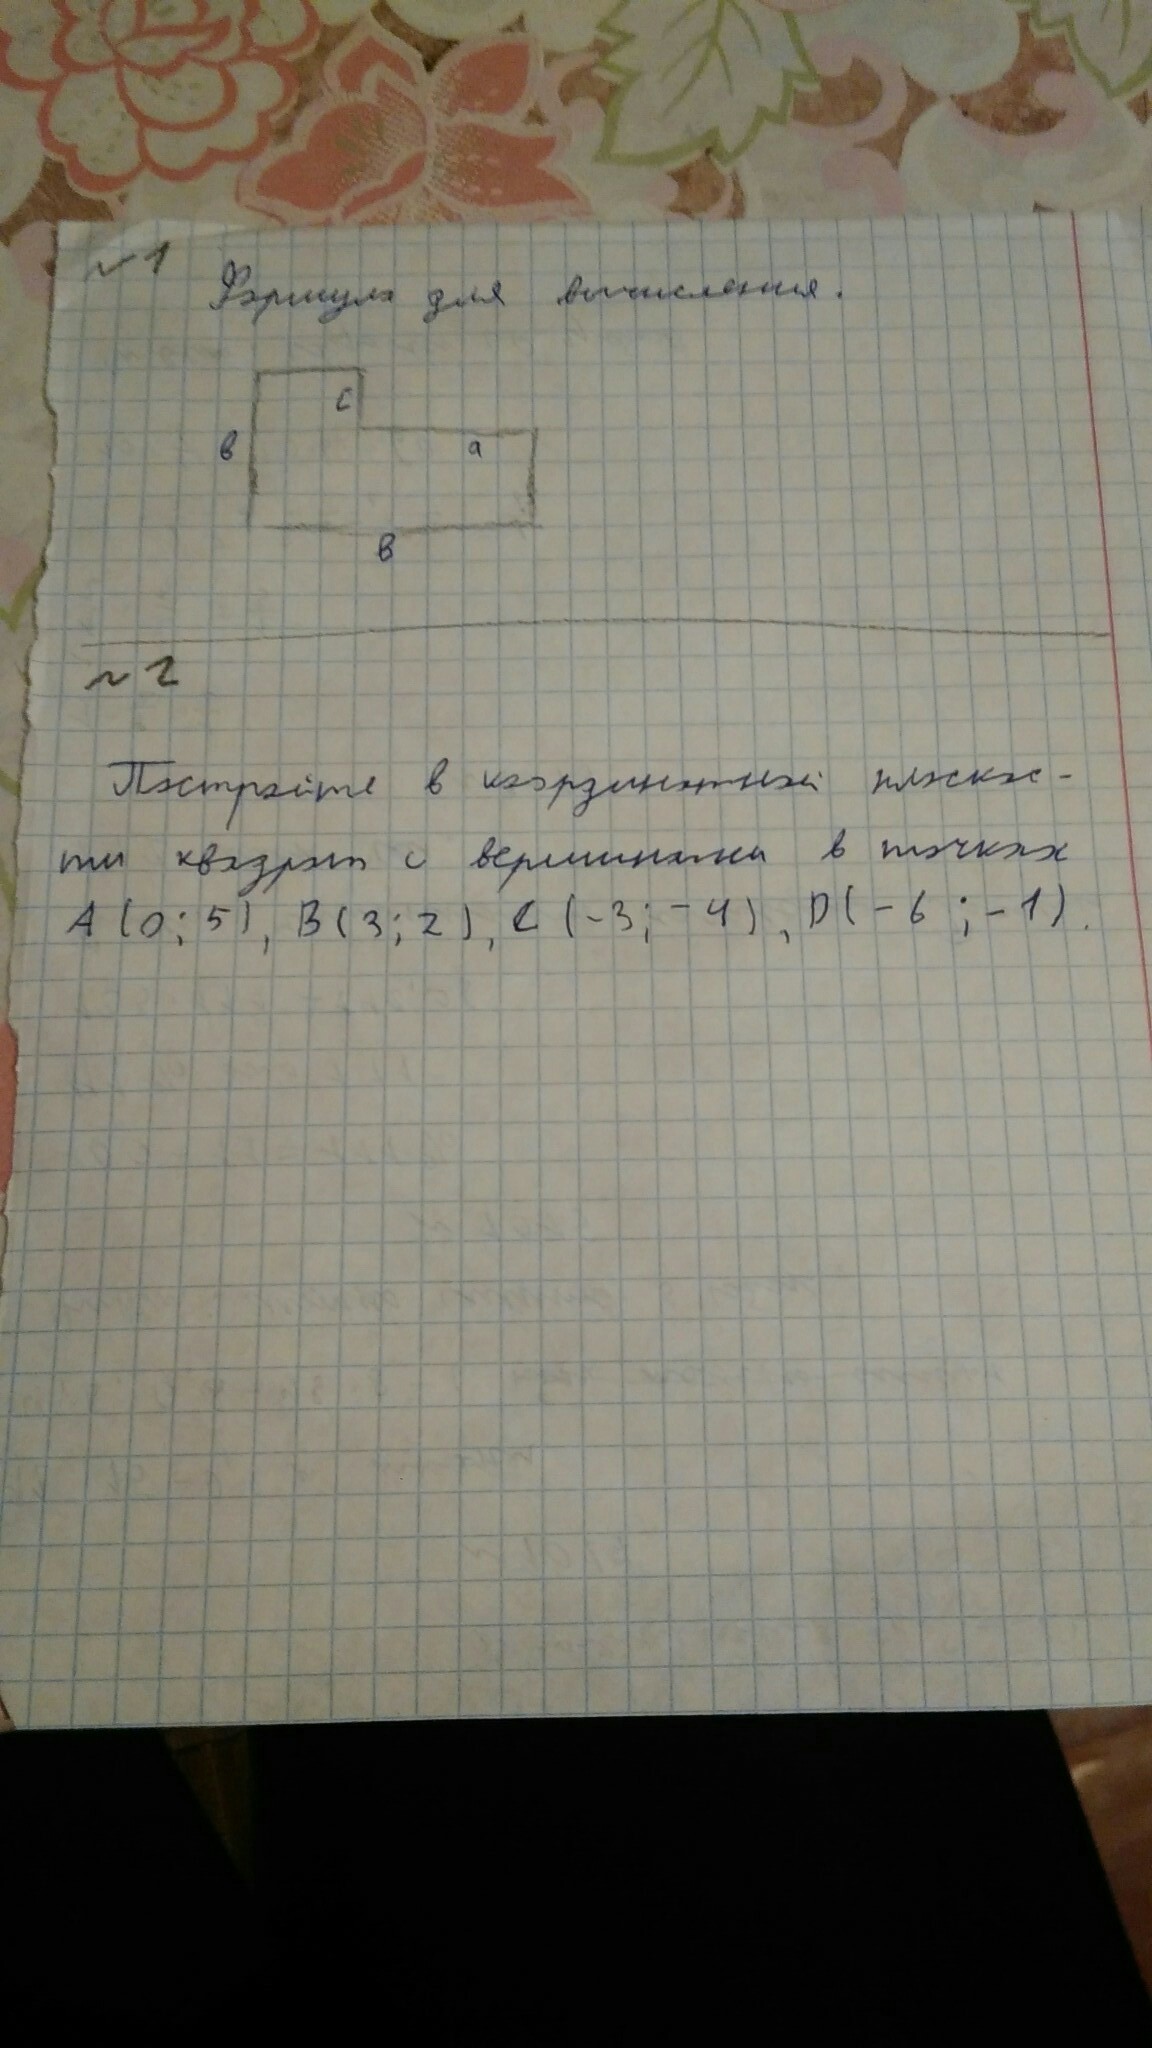 №1
Формула для вычисления.
c
в
a
в
№2
Постройте в координатной плоскос-
ти квадрат с вершинами в точках
A (0; 5), B (3; 2), C (-3; -4), D (-6; -1).